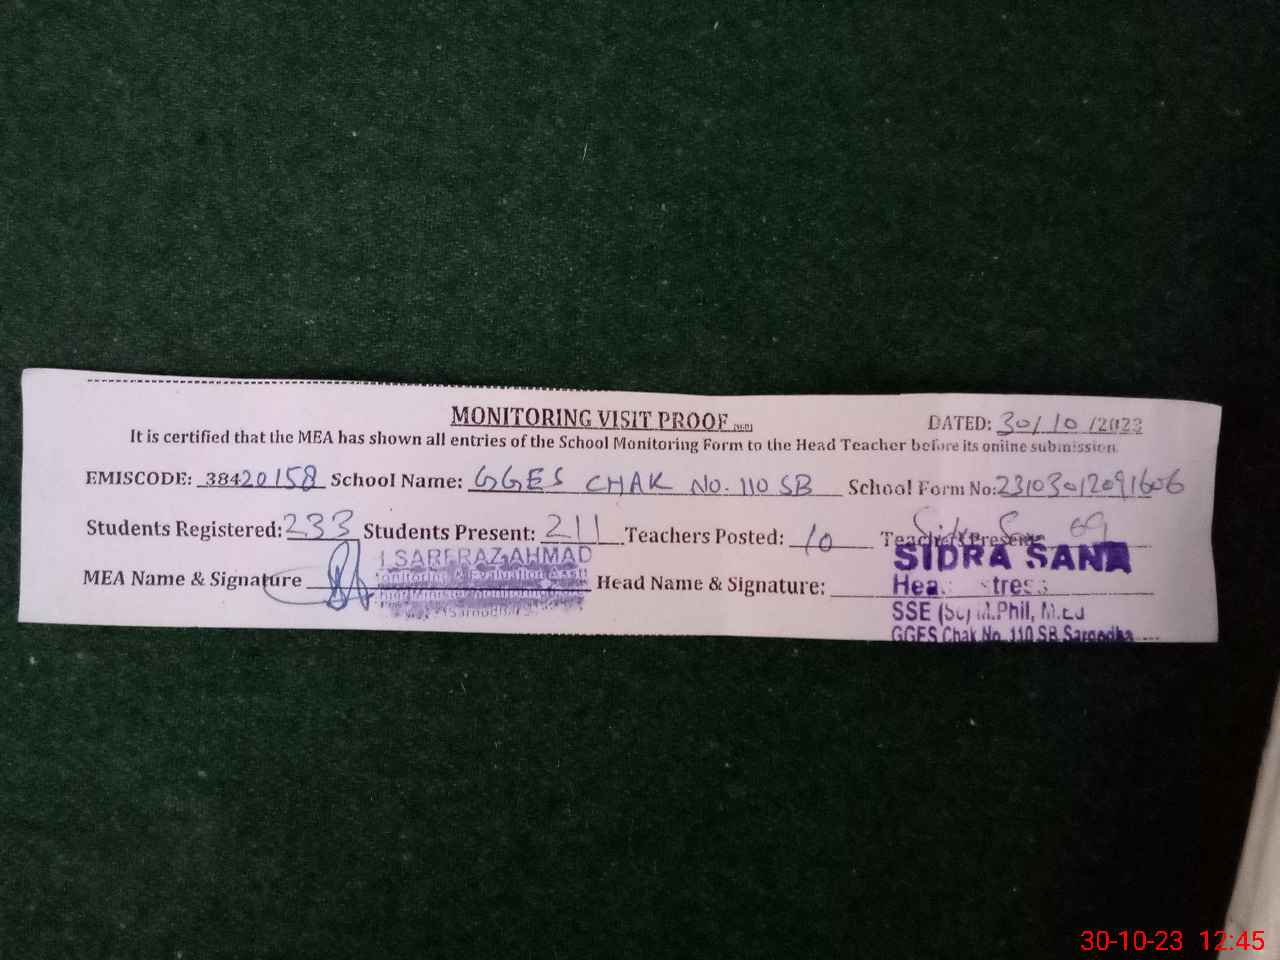 MONITORING VISIT PROOF
DATED: 30/10/2023
It is certified that the MEA has shown all entries of the School Monitoring Form to the Head Teacher before its online submission.
EMISCODE: 38420158 School Name: GGES CHAK No. 110 SB School Form No: 23103012091606
Students Registered: 233 Students Present: 211 Teachers Posted: 10 Teachers Present: 09
MEA Name & Signature SARFRAZ AHMAD Head Name & Signature: SIDRA SANA
Monitoring & Evaluation Asstt
Chief Minister monitoring
Headmistress
SSE (Sc) M.Phil, M.Ed
GGES Chak No. 110 SB Sargodha
30-10-23 12:45